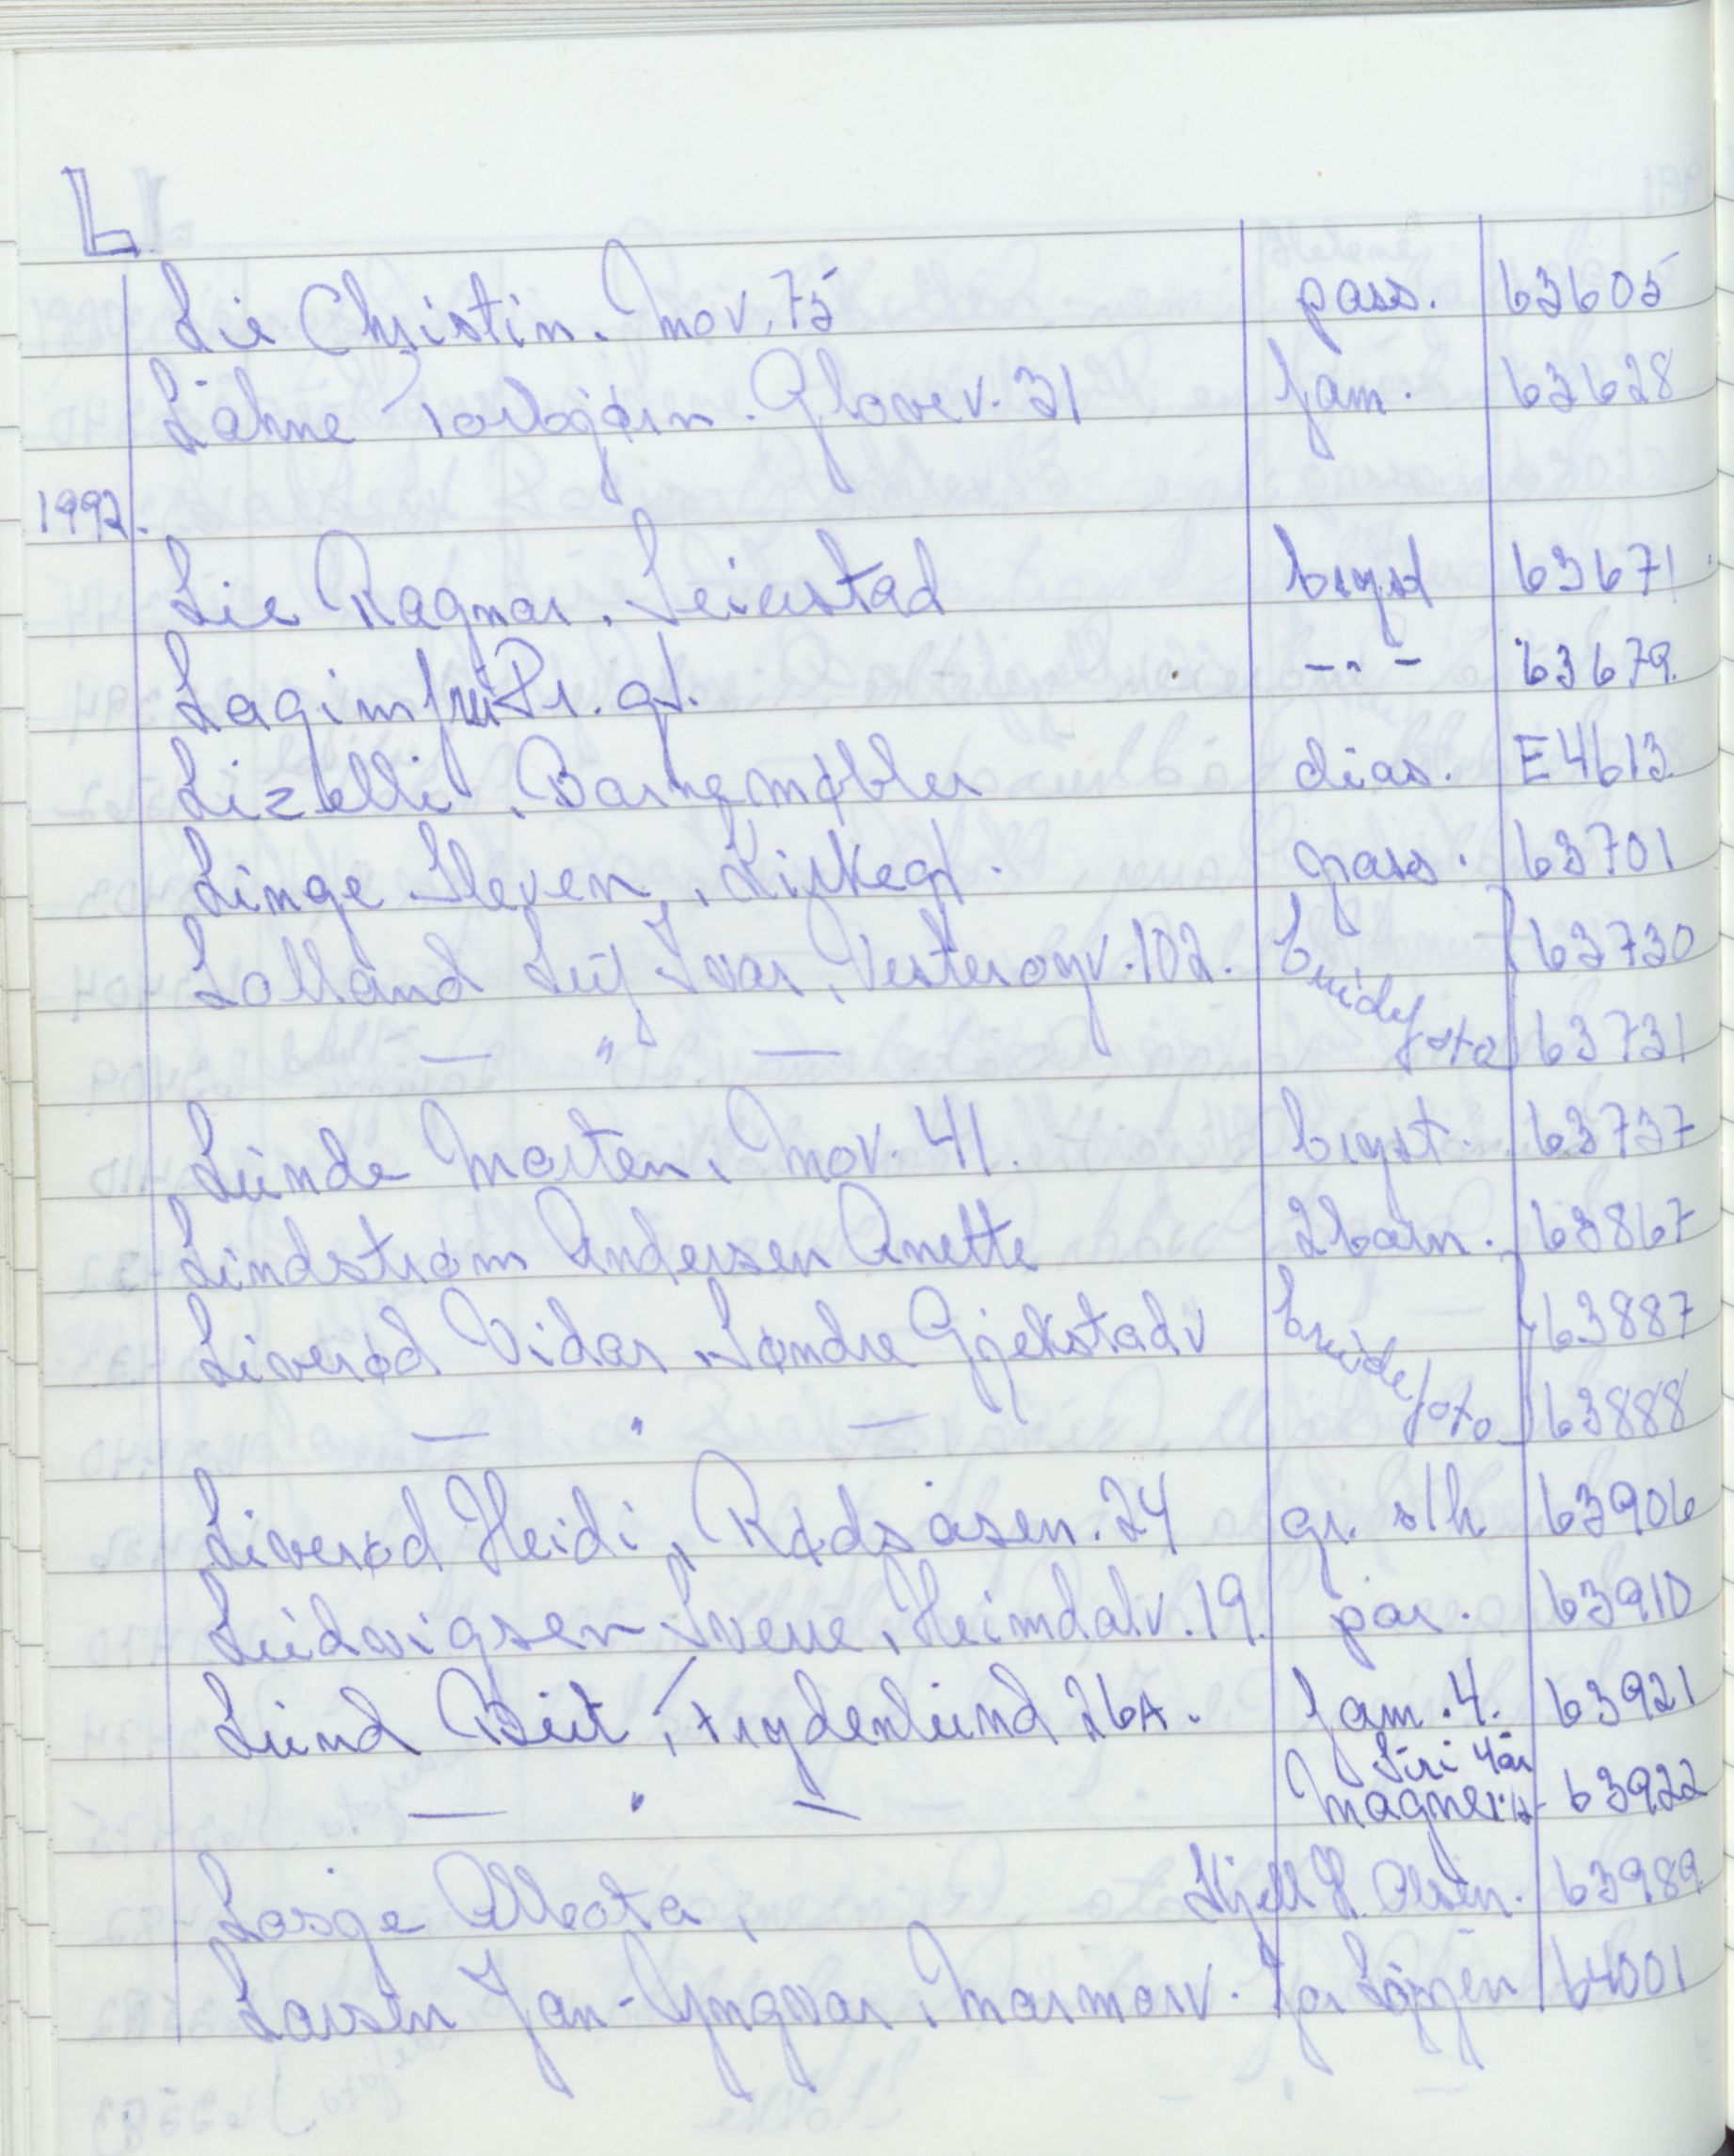 L
Lie Christin. Mov. 75 pass. 63605
Låhne Torbjørn. Glovev. 31 fam. 63628
1992.
Lie Ragnar. Seierstad bryst 63671
Pr. gt. -"- 63679.
Lizelli, Barnemøbler dias. E4613
Linge Steven, Kirkegt. pass. 63701
Lolland Leif Ivar, Vesterøyv. 102. brudefoto 63730
— " — 63731
Lunde Morten, Mov. 41. bryst. 63737
Lindstrøm Andersen Anette 2 barn. 63867
Liverød Vidar, Søndre Gjekstadv brudefoto 63887
— " — 63888
Liverød Heidi, Rødsåsen. 24 gr. s/h 63906
Ludvigsen Svene, Heimdalv. 19. par. 63910
Lund Berit, Frydenlund 26A. fam. 4. 63921
Siri 4 år
— " — Magne 63922
Lorge Alberta, Kjell H. Olsen. 63989
Larsen Jan-Yngvar, Marmorv. 64001